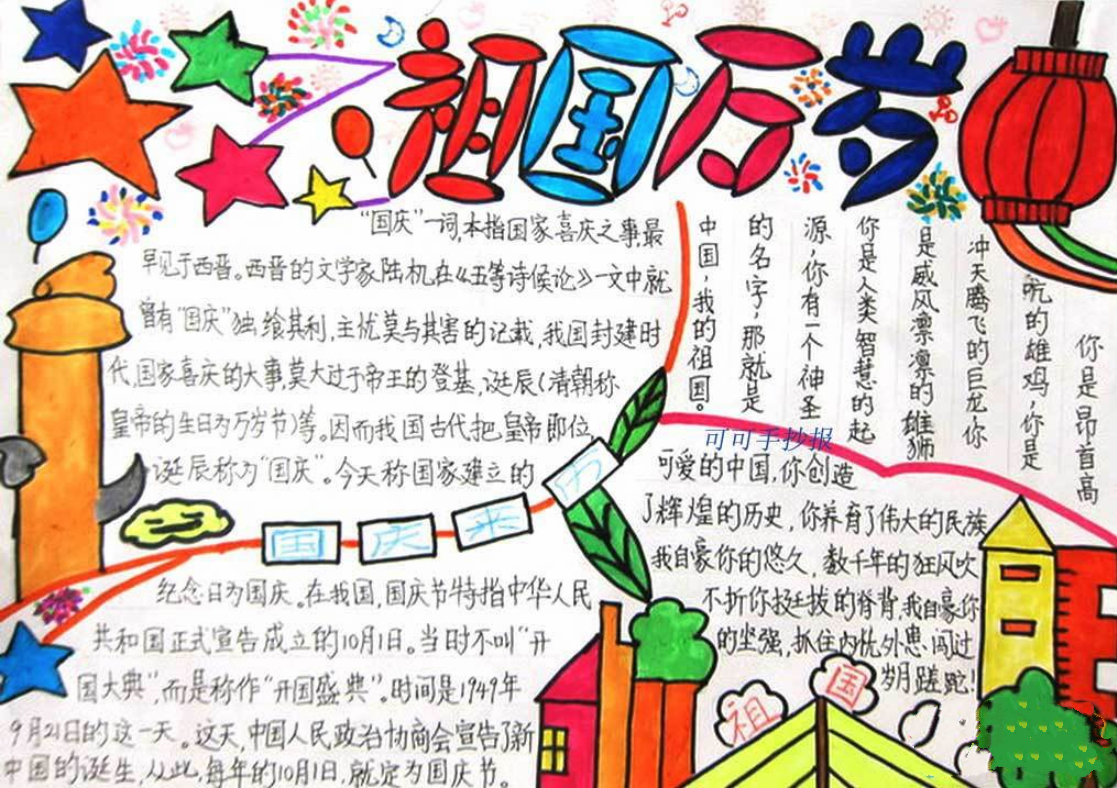 祖国万岁
“国庆”一词,本指国家喜庆之事,最
早见于西晋。西晋的文学家陆机在《五等诗候论》一文中就
曾有“国庆”独,飨其利,主忧莫与其害的记载,我国封建时
代,国家喜庆的大事,莫大过于帝王的登基,诞辰(清朝称
皇帝的生日为万岁节)等。因而我国古代把皇帝即位,
诞辰称为“国庆”。今天称国家建立的
国庆来历
纪念日为国庆。在我国,国庆节特指中华人民
共和国正式宣告成立的10月1日。当时不叫“开
国大典”,而是称作“开国盛典”。时间是1949年
9月21日的这一天。这天,中国人民政治协商会宣告了新
中国的诞生,从此,每年的10月1日,就定为国庆节。
你是昂首高
吭的雄鸡,你是
冲天腾飞的巨龙你
是威风凛凛的雄狮
你是人类智慧的起
源,你有一个神圣
的名字,那就是
中国,我的祖国。
可可手抄报
可爱的中国,你创造
了辉煌的历史,你养育了伟大的民族
我自豪你的悠久,数千年的狂风吹
不折你挺拔的脊背,我自豪你
的坚强,抓住内忧外患,闯过
岁月蹉跎!
祖国